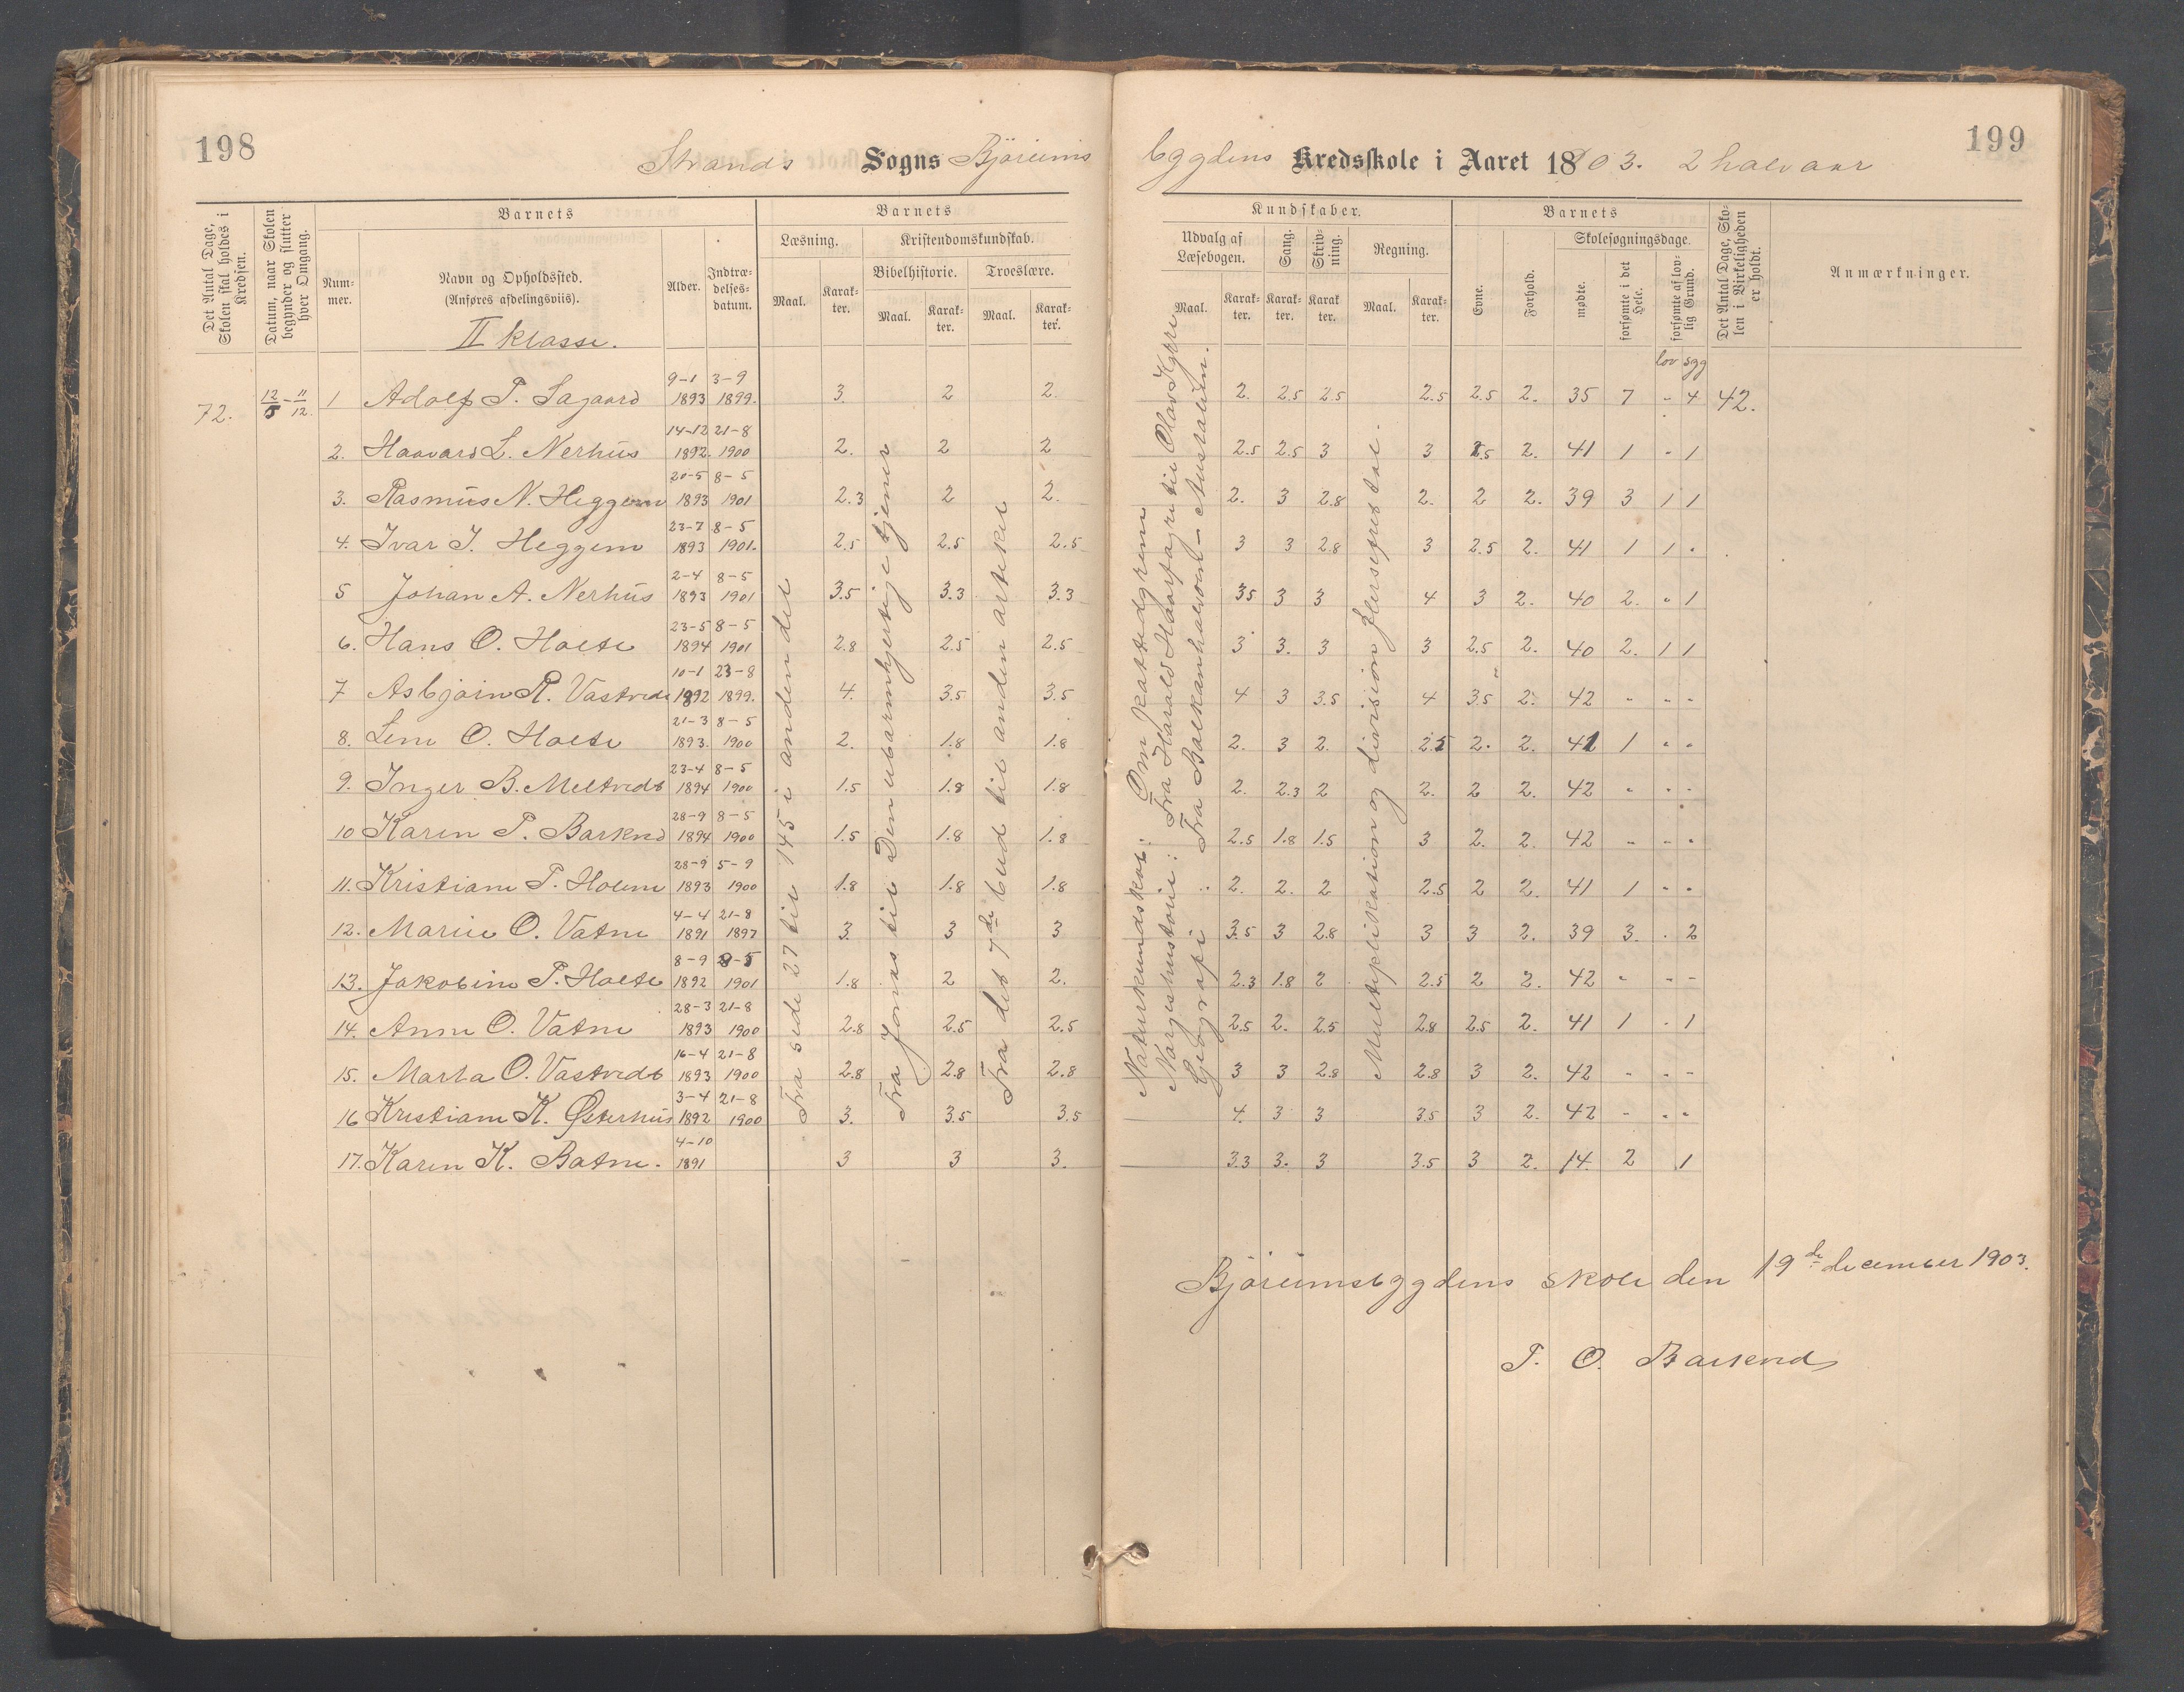 198
199
Strands Sogns Björeims bygdens Kredsskole i Aaret 1903. 2 halvaar
Det Antal Dage, Skolen skal holdes i Kredsen.
Datum, naar Skolen begynder og slutter hver Omgang.
Barnets
Nummer.
Navn og Opholdssted. (Anføres afdelingsviis).
Alder.
Indtrædelsesdatum.
Barnets
Læsning.
Maal.
Karakter.
Kristendomskundskab.
Bibelhistorie.
Maal.
Karakter.
Troeslære.
Maal.
Karakter.
Kundskaber.
Udvalg af Læsebogen.
Maal.
Karakter.
Sang.
Karakter.
Skrivning.
Karakter.
Regning.
Maal.
Karakter.
Barnets
Evne.
Forhold.
Skolesøgningsdage.
mødte.
forsømte i det Hele.
forsømte af lovlig Grund.
Det Antal Dage, Skolen i Virkeligheden er holdt.
Anmærkninger.
II klasse.
lov syg
72. 12/5 - 11/12. 1 Adolf T. Sagaard 9-1 1893 3-9 1899. 3. 2 2. 2. 2.5 2.5 2.5 2.5 2. 35 7 - 4 42.
2. Haavard L. Nerhus 14-12 1892. 21-8 1900 2. 2 2 2.5 2.5 3 3 2.5 2. 41 1 - 1
3. Rasmus N. Heggem 20-5 1893 8-5 1901 2.3 2 2. 2. 3 2.8 2. 2 2. 39 3 1 1
4. Ivar I. Heggem 23-7 1893 8-5 1901. 2.5 2.5 2.5 3 3 2.8 3 2.5 2. 41 1 1 -
5 Johan A. Nerhus 2-4 1893 8-5 1901 3.5 3.3 3.3 35 3 3 4 3 2. 40 2. - 1
6. Hans O. Holte 23-5 1894 8-5 1901 2.8 2.5 2.5 3 3. 3 3 2.5 2. 40 2. 1 1
7 Asbjørn R. Vastveds 10-1 1892 23-8 1899. 4. 3.5 3.5 4 3 3.5 4 35 2. 42 - - -
8. Lene O. Holte 21-3 1893. 8-5 1900 2. 1.8 1.8 2. 3 2. 2.5 2. 2. 41 1 - -
9. Inger B. Meltveds 23-4 1894 8-5 1900 1.5 1.8 1.8 2. 2.3 2 2. 2 2. 42 - - -
10 Karen T. Barkned 28-9 1894 8-5 1900 1.5 1.8 1.8 2.5 1.8 1.5 3 2. 2. 42 - - -
11. Kristiane T. Holme 28-9 1893 5-9 1900 1.8 1.8 1.8 2. 2. 2 2.5 2 2. 41 1 - -
12. Marie O. Vatne 4-4 1891 21-8 1897 3. 3 3 3.5 3 2.8 3 3 2. 39 3. - 2
13. Jakobine T. Holte 8-9 1892 8-5 1901 1.8 2 2. 2.3 1.8 2 2.5 2 2. 42 - - -
14. Anne O. Vatne 28-3 1893 21-8 1900 2.8 2.5 2.5 2.5 2. 2.5 2.8 2.5 2. 41 1 - 1
15. Marta O. Vastveds 16-4 1893 21-8 1900 2.8 2.8 2.8 3 3 2.8 2.8 3 2. 42 - - -
16 Kristiane K. Østerhus 3-4 1892 21-8 1900 3. 3.5 3.5 4. 3 3 3.5 3 2. 42 - - -
17. Karen K. Vatne. 4-10 1891 3 3 3. 3.3 3. 3 3.5 3 2. 14. 2 1
Fra side 27 til 145 i anden del
Fra Jonas til Den ubarmhjertige tjener
Fra det 7de bud til anden artikel
Naturkundskab: Om kattedyrene
Norgeshistorie: Fra Harald Haarfagre til Olav Kyrre
Geografi Fra Balkanhalvøen - Australien.
Multiplikation og division flersifret tal.
Björeimsbygdens skole den 19de december 1903.
T. O. Barkned